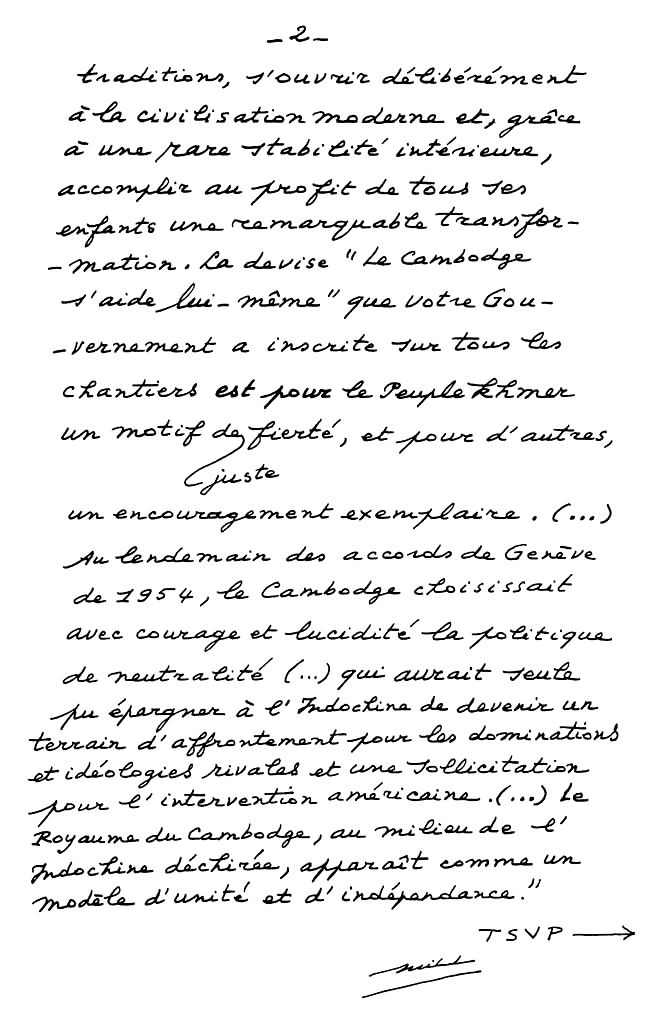 - 2 -
traditions, s'ouvrir délibérément
à la civilisation moderne et, grâce
à une rare stabilité intérieure,
accomplir au profit de tous ses
enfants une remarquable transfor-
-mation. La devise "Le Cambodge
s'aide lui-même" que votre Gou-
-vernement a inscrite sur tous les
chantiers est pour le Peuple khmer
un motif de fierté, et pour d'autres,
juste
un encouragement exemplaire. (...)
Au lendemain des accords de Genève
de 1954, le Cambodge choisissait
avec courage et lucidité la politique
de neutralité (...) qui aurait seule
pu épargner à l'Indochine de devenir un
terrain d'affrontement pour les dominations
et idéologies rivales et une sollicitation
pour l'intervention américaine. (...) Le
Royaume du Cambodge, au milieu de l'
Indochine déchirée, apparaît comme un
modèle d'unité et d'indépendance."
TSVP →